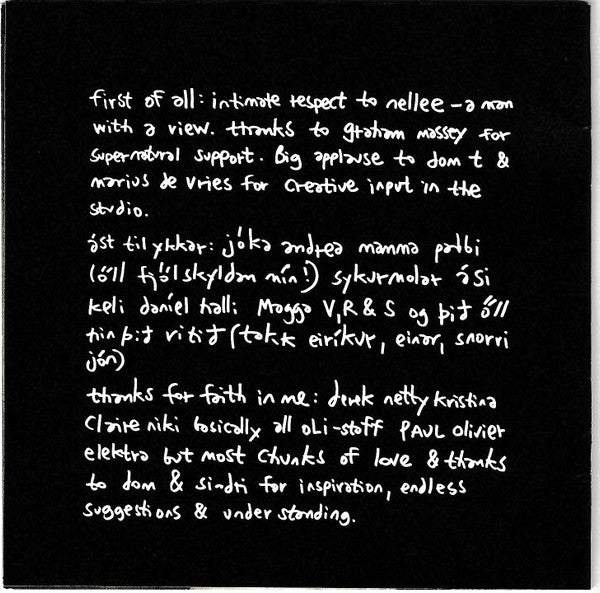 first of all: intimate respect to nellee - a man
with a view. thanks to graham massey for
supernatural support. Big applause to dom t &
marius de vries for creative input in the
studio.
ást til ykkar: jóka andrea mamma pabbi
(öll fjölskyldan mín!) sykurmolar ási
keli daníel halli Magga V, R & S og þið öll
hin þið vitið (takk eiríkur, einar, snorri
jón)
thanks for faith in me: derek netty kristina
Claire niki basically all OLI-staff PAUL Olivier
elektra but most chunks of love & thanks
to dom & sindri for inspiration, endless
suggestions & understanding.